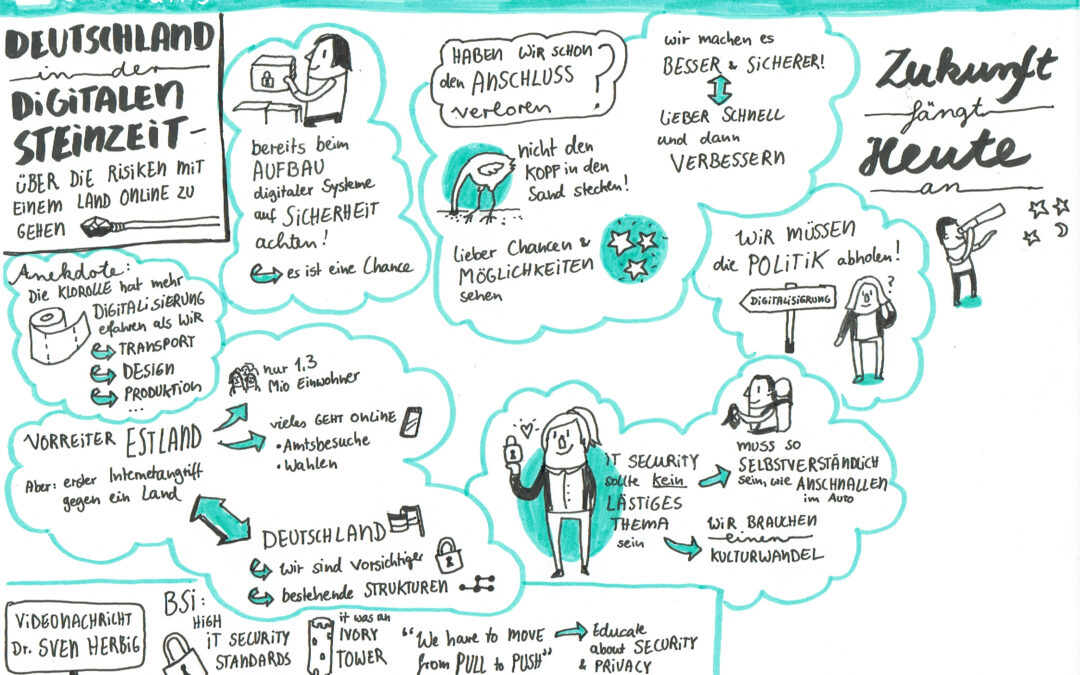 DEUTSCHLAND
in der
DIGITALEN
STEINZEIT-
ÜBER DIE RISIKEN MIT
EINEM LAND ONLINE ZU
GEHEN
bereits beim
AUFBAU
digitaler Systeme
auf SICHERHEIT
achten!
es ist eine Chance
HABEN WIR SCHON
den ANSCHLUSS
verloren
?
nicht den
KOPF in den
Sand stecken!
lieber Chancen &
MÖGLICHKEITEN
sehen
wir machen es
BESSER & SICHERER!
LIEBER SCHNELL
und dann
VERBESSERN
Zukunft
fängt
Heute
an
WIR MÜSSEN
die POLITIK abholen!
DIGITALISIERUNG
?
Anekdote:
Die KLOROLLE hat mehr
DIGITALISIERUNG
erfahren als WIR
TRANSPORT
DESIGN
PRODUKTION
...
VORREITER ESTLAND
Aber: erster Internetangriff
gegen ein Land
nur 1,3
Mio Einwohner
vieles GEHT ONLINE
• Amtsbesuche
• Wahlen
DEUTSCHLAND
wir sind vorsichtiger
bestehende STRUKTUREN
IT SECURITY
sollte kein
LÄSTIGES
THEMA
sein
muss so
SELBSTVERSTÄNDLICH
sein, wie ANSCHNALLEN
im Auto
WIR BRAUCHEN
einen
KULTURWANDEL
VIDEONACHRICHT
Dr. SVEN HERBIG
BSI:
HIGH
IT SECURITY
STANDARDS
it was an
IVORY
TOWER
"We have to MOVE
from PULL to PUSH"
Educate
about SECURITY
& PRIVACY